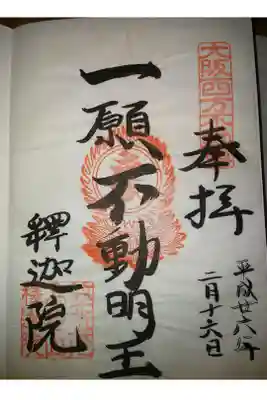 奉拝
平成廿六年
二月十六日
一願不動明王
釋迦院